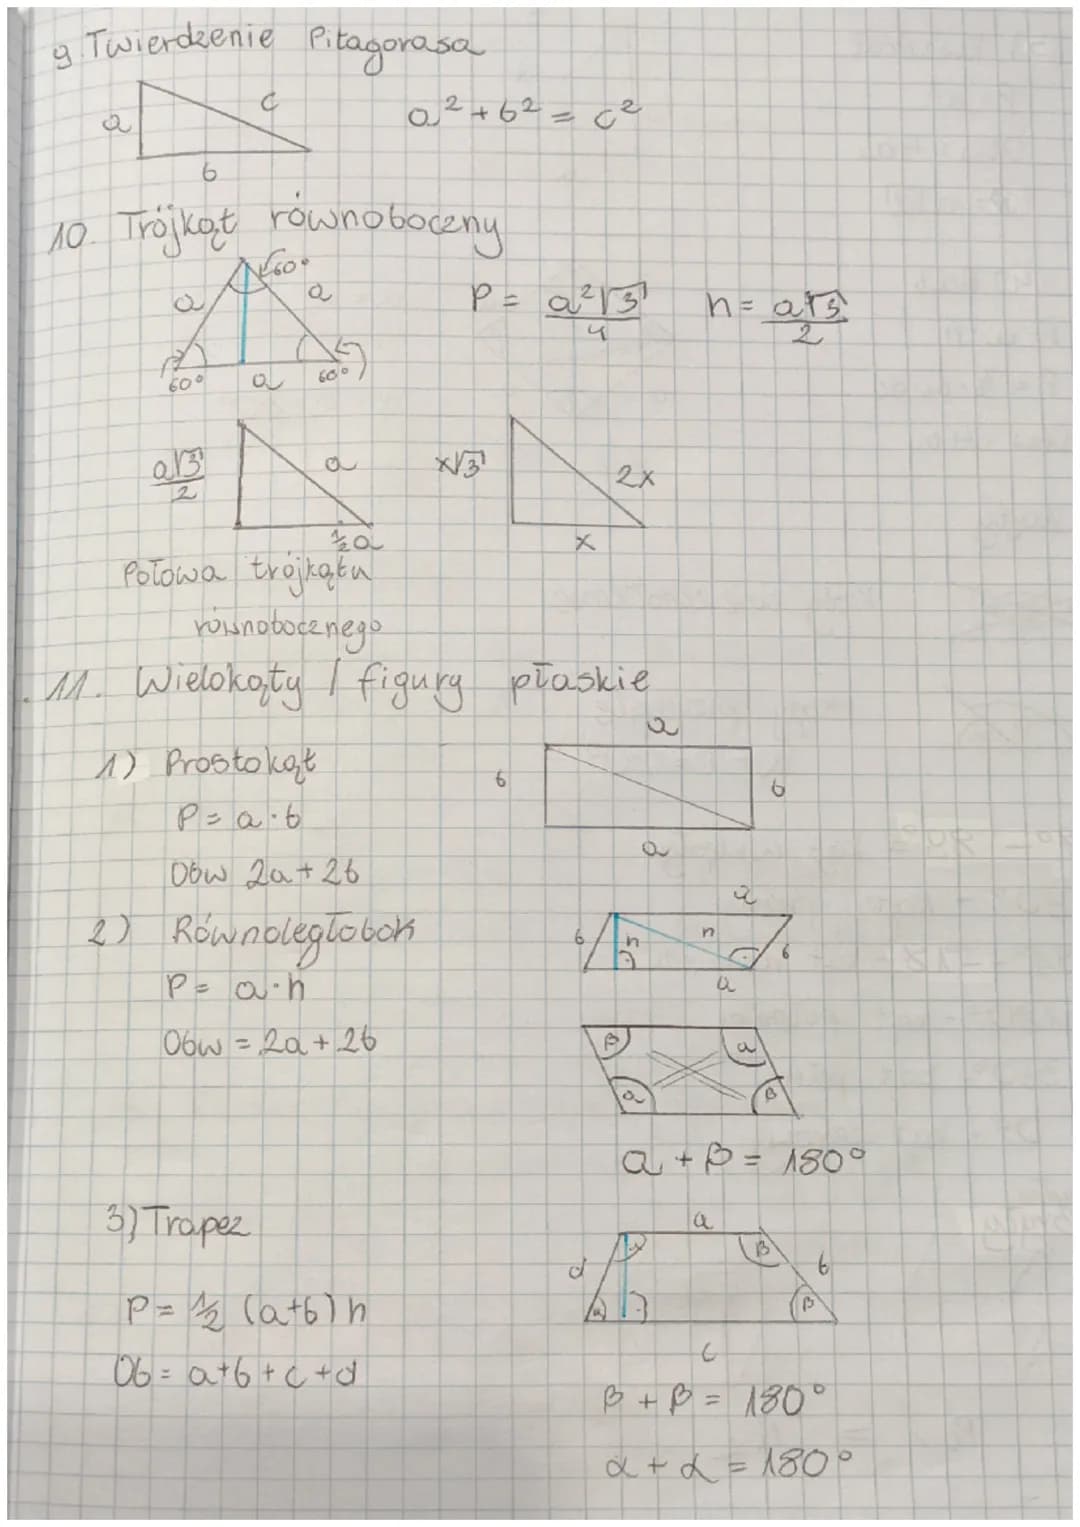 9. Twierdzenie Pitagorasa
a
c
b
a² + b² = c²
10. Trójkąt równoboczny
60°
a
a
60°
a
60°
P = a²√3/4
h = a√3/2
a√3/2
a
½a
x√3
2x
x
Połowa trójkąta
równobocznego
11. Wielokąty / figury płaskie
1) Prostokąt
a
b
b
a
P = a·b
Obw 2a + 2b
2) Równoległobok
a
b
h
h
b
a
P = a·h
Obw = 2a + 2b
β
a
a
β
a + β = 180°
3) Trapez
a
d
α
β
b
α
β
c
P = ½ (a+b) h
Ob = a+b+c+d
β + β = 180°
α + α = 180°